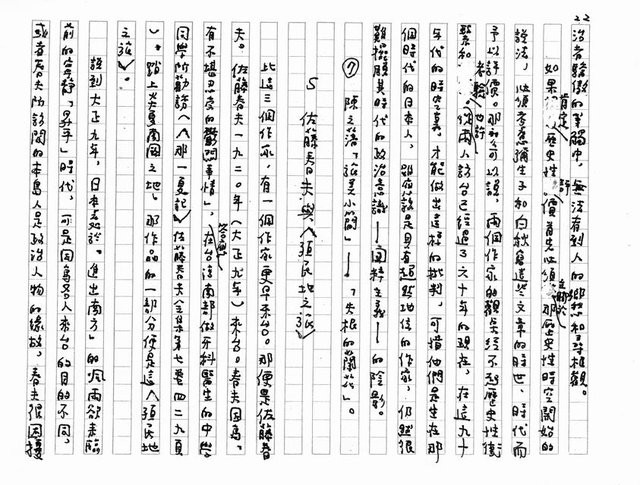 22
治者驕傲的筆觸中,無法看到人的鄉愁和尋根觀。
如果肯定歷史性評價首先必須立腳於那歷史性時空開始的
說法,必須考慮彌生子和白秋寫這些文章的時世、時代而
予以評價。那麼可以說,兩個作家的觀察經不起歷史性衡
量和考驗也許從兩人訪台已經過了六十年的現在,在這九十
年代的時空裏。才能做出這樣的批判,可惜他們是生在那
個時代的日本人,雖然該是具有超然地位的作家,仍然很
難擺脫其時代的政治意識——國粹主義——的陰影。
⑦ 陳之藩「旅美小簡」——「失根的蘭花」。
5 佐藤春夫與〈殖民地之旅〉
比這三個作家,有一個作家更早來台。那便是佐藤春
夫。佐藤春夫一九二〇年(大正九年)來台。春夫因為,
有不堪忍受的鬱悶事情」,在台灣南部做牙科醫生的中學
同學所勸訪(〈那一夏記〉佐藤春夫全集第七卷四二九頁
)。踏上炎夏南國之地。那作品的一部分便是這〈殖民地
之旅〉。
說到大正九年,日本尚於。進出南方」的風雨欲來臨
前的寧靜「昇平」時代,可是因為各人來台的目的不同,
或者春夫所訪問的本島人是政治人物的緣故,春夫很困擾